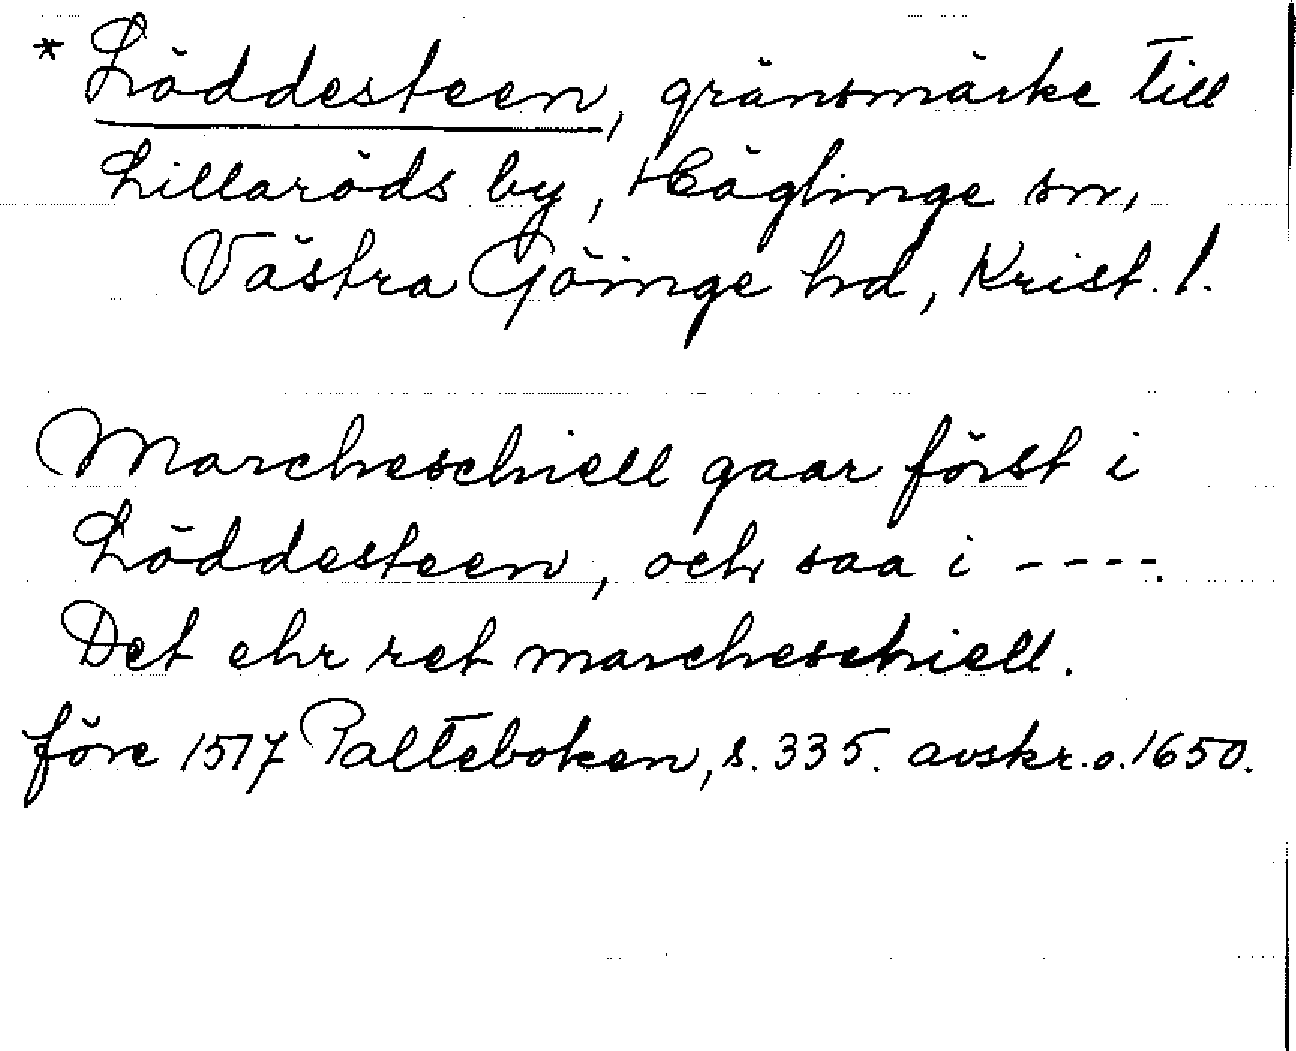 * Löddesteen, gränsmärke till
Lillaröds by, Häglinge sn,
Västra Göinge hd, Krist. l.
Marcheschiell gaar först i
Löddesteen, och saa i ----.
Det ehr ret marcheschiell.
före 1517 Palteboken, s. 335. avskr. o. 1650.